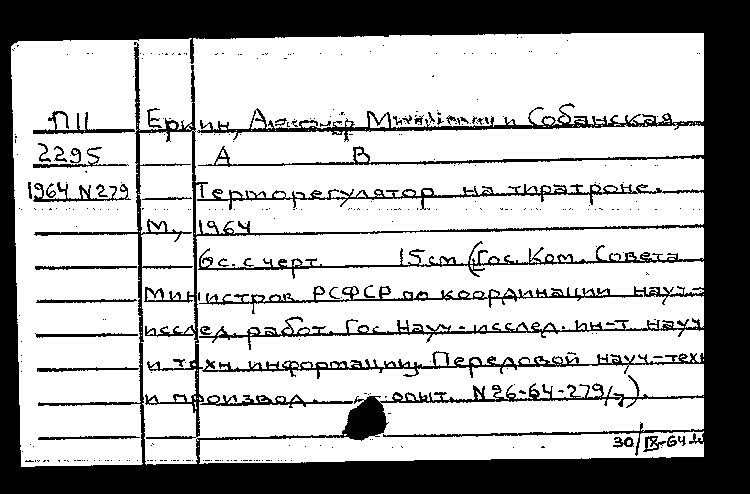 П11 Еркин, Александр Михайлович и Собанская,
2295 А В
1964 N279 Терморегулятор на тиратроне.
М., 1964
6с. с черт. 15см (Гос. Ком. Совета
Министров РСФСР по координации науч-
исслед. работ. Гос. Науч-исслед. ин-т науч
и техн. информации. Передовой науч-техн
и производ. опыт. N26-64-279/7).
30/IX-64